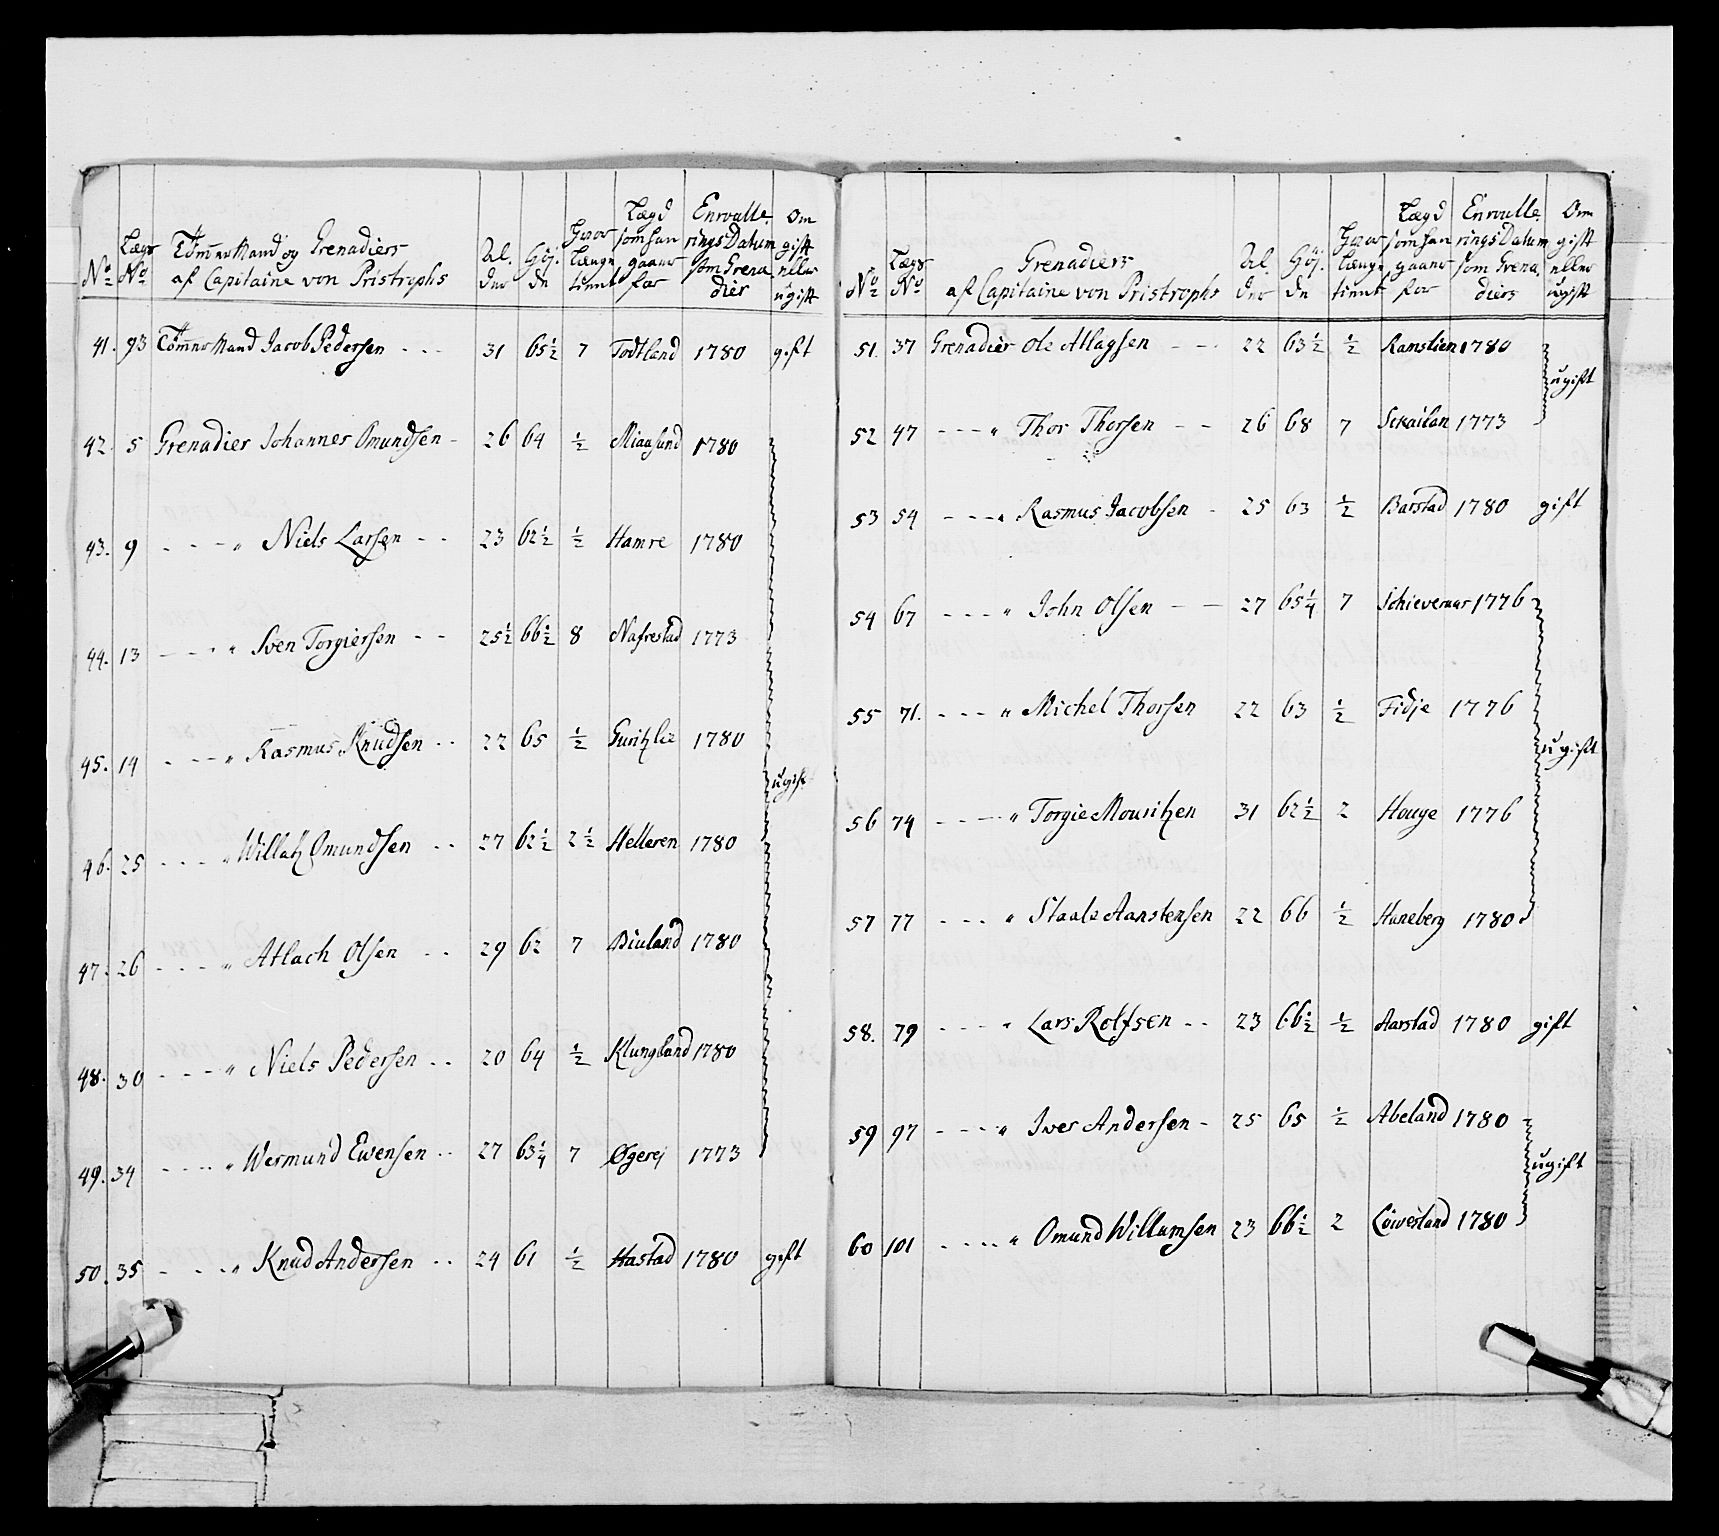 No
Lægs No
Tömmer Mand og Grenadiers
af Capitaine von Pristrophs
Al. der
Høj. de
Hvor længe tient
Lægd som han gaaer for
Enroulle rings Datum som Grena dier
Om gift eller ugift
41. 93 Tömmer Mand Jacob Pedersen - - - 31 65½ 7 Todtland 1780 gift
42. 5 Grenadier Johannes Omundsen - 26 64 ½ Miaasund 1780
43. 9 - - - " Niels Larsen - - 23 62½ ½ Hamre 1780
44. 13 - - - " Sven Torgiersen - - 25½ 66½ 8 Nafrestad 1773
45. 14 - - - " Rasmus Knudsen - - 22 65 ½ Guritzlie 1780
ugift
46. 25 - - - " Willatz Omundsen - - 27 62½ 2½ Helleren 1780
47. 26 - - - " Atlach Olsen - - 29 62 7 Biuland 1780
48. 30 - - - " Niels Pedersen - - 20 64 ½ Klungland 1780
49. 34 - - - " Wermund Ewensen - - 27 63¼ 7 Øgerej 1773
50. 35 - - - " Knud Andersen - - 24 61 ½ Hastad 1780 gift
No
Lægs No
Grenadiers
af Capitaine von Pristrophs
Al. der
Høj. de
Hvor længe tient
Lægd som han gaaer for
Enroulle rings Datum som Grena diers
Om gift eller ugift
51. 37 Grenadier Ole Atlagsen - - - 22 63½ ½ Ramslien 1780
ugift
52 47 - - - " Thor Thorsen - - 26 68 7 Sckailan 1773
53 54 - - - " Rasmus Jacobsen - 25 63 ½ Barstad 1780 gift
54 67 - - - " John Olsen - - 27 65¼ 7 Schieveraas 1776
55 71. - - - " Michel Thorsen 22 63 ½ Fidje 1776
ugift
56 74 - - - " Torgie Mouritzen 31 62½ 2 Houge 1776
57 77 - - - " Staale Aanstensen 22 66 ½ Haneberg 1780
58. 79 - - - " Lars Rolfsen - - 23 66½ ½ Aarstad 1780 gift
59 97 - - - " Iver Andersen - 25 65 ½ Abeland 1780
ugift
60 101 - - - " Omund Willumsen 23 66½ 2 Löwesland 1780